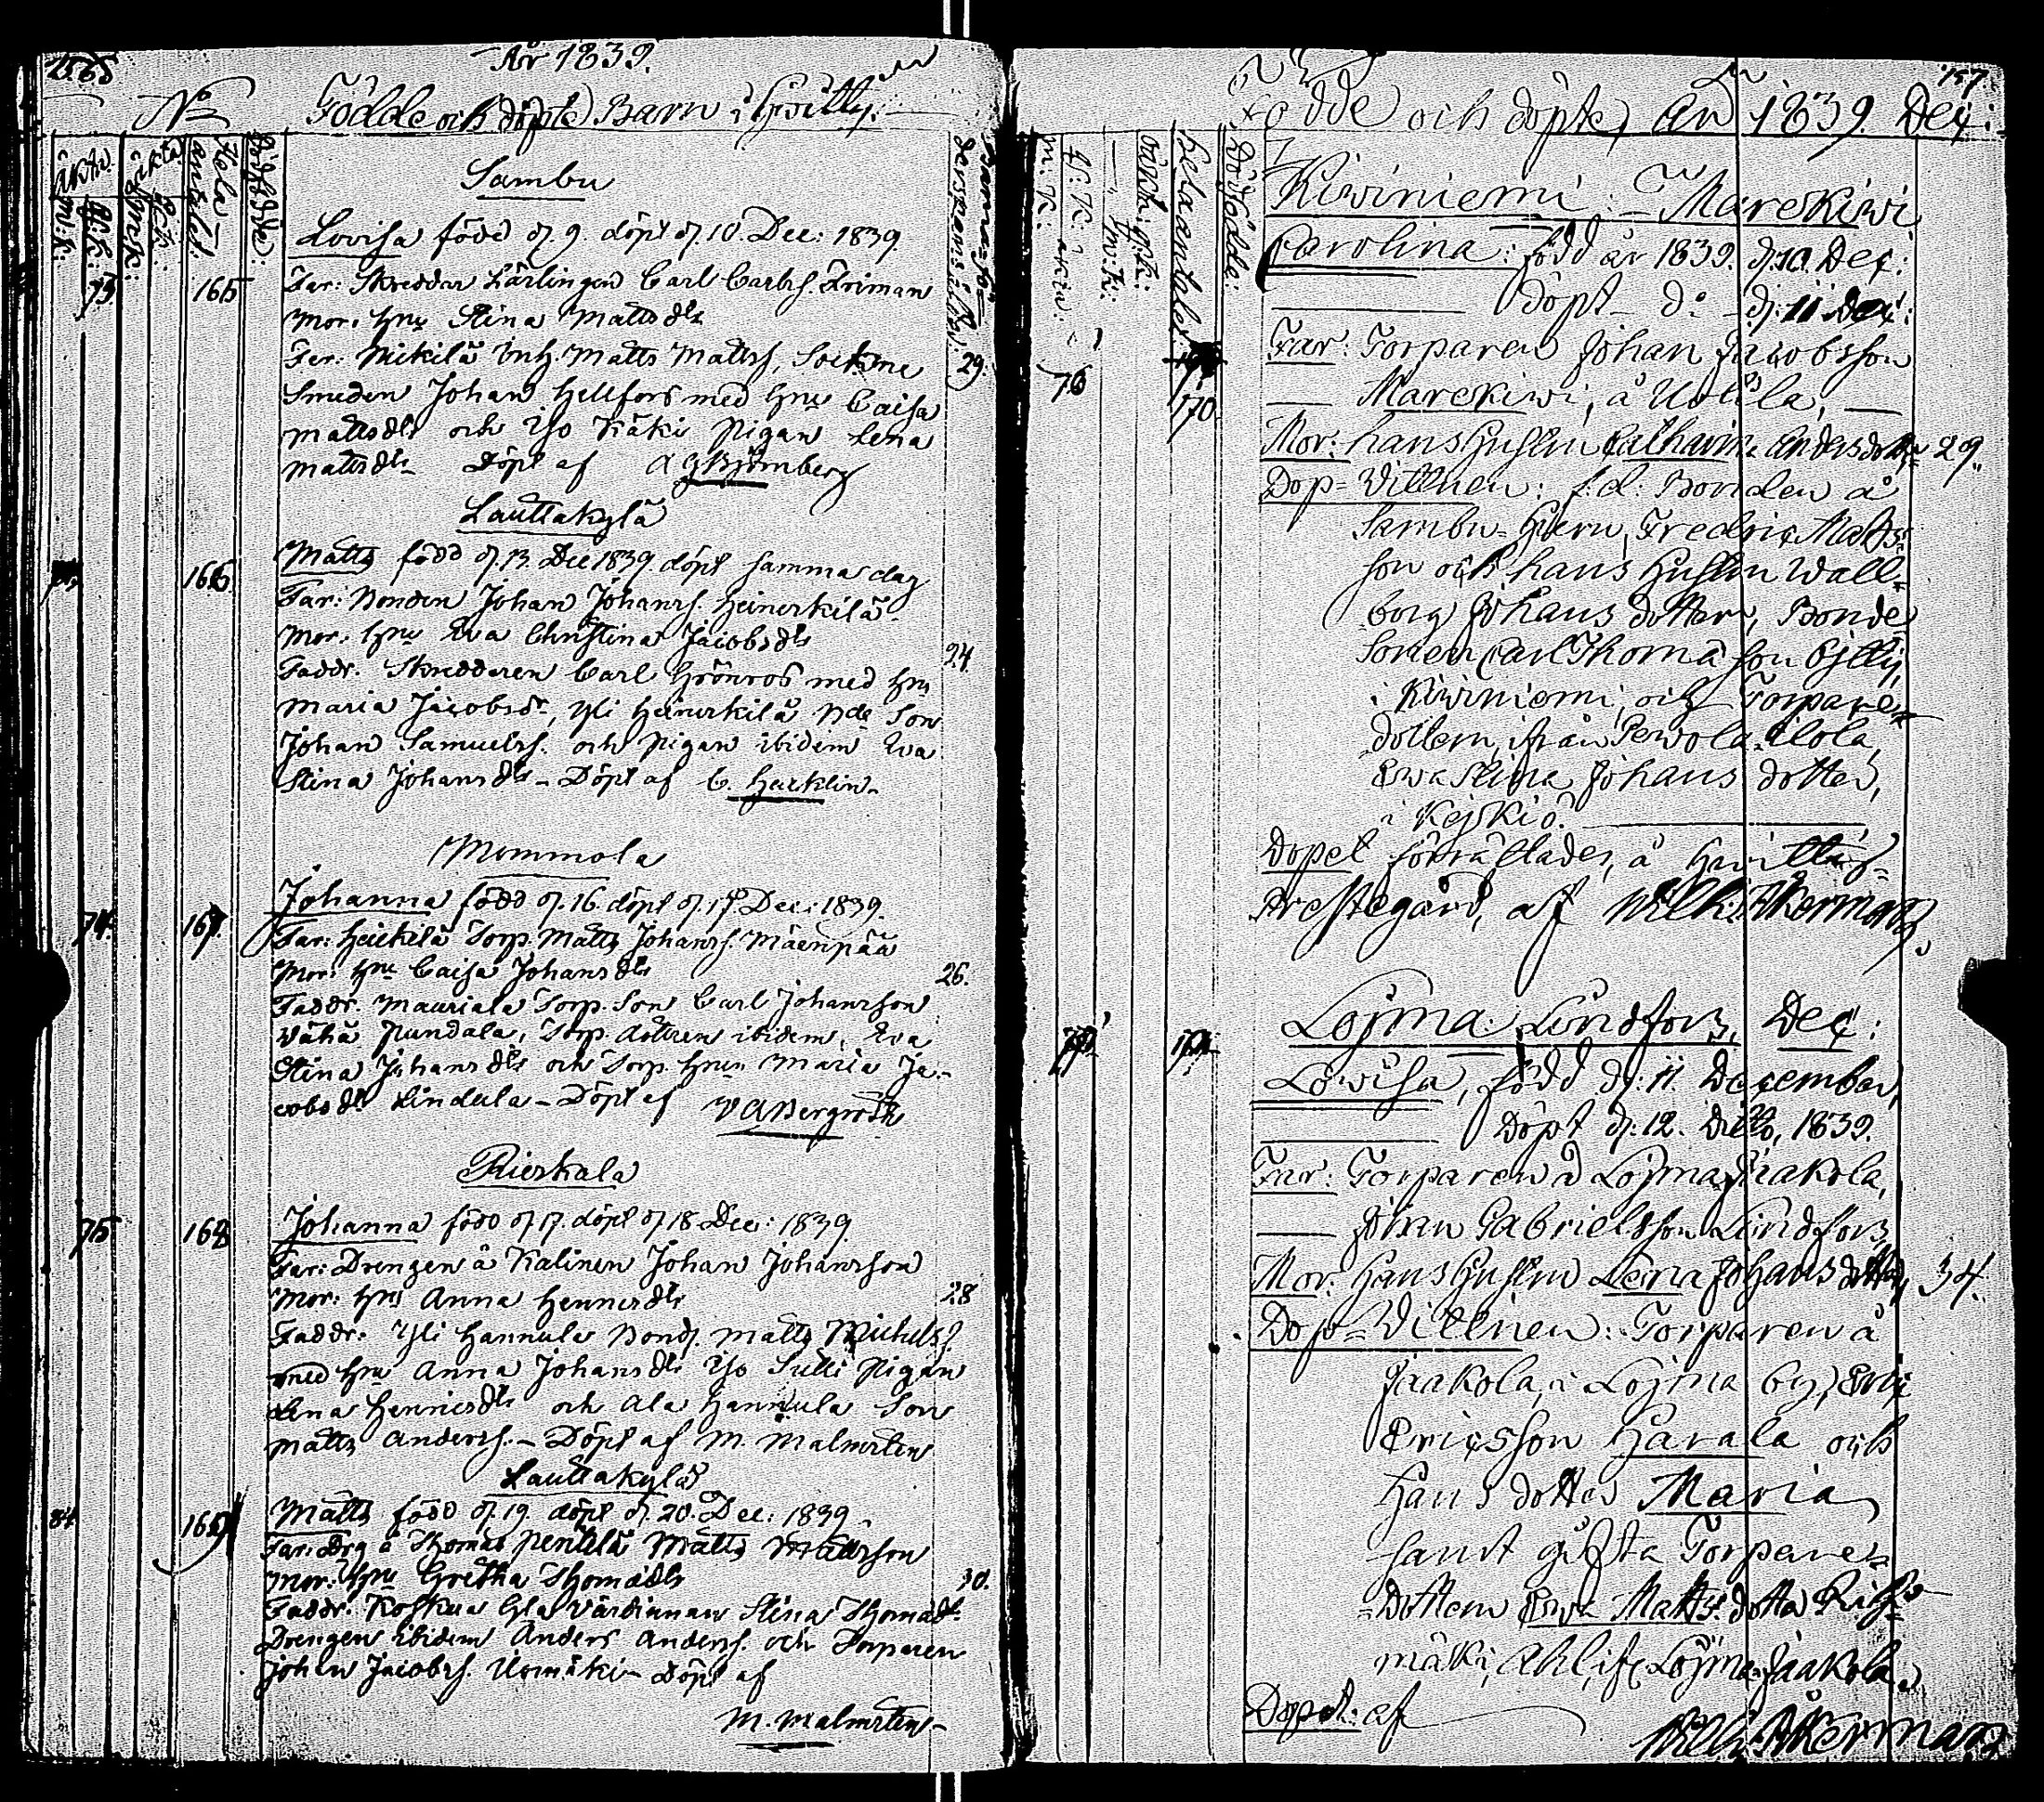 År 1839.
No Födde och döpte Barn i Hvittis
äkta
m:k:
q:k:
oäkta
Hela
antalet
Dödfödde:
Sambu
Lovisa född d. 9. döpt d. 10. Dec: 1839
73 165 Far: Skreddar Lärlingen Carl Carlss. Friman
Mor: Hu Stina Mattsdtr 29.
Far: Mickilä Inh. Matts Mattss, Sockne
Smeden Johan Hellfors med Hu Caisa
Mattsdtr och Iso Käki Pigan Lena
Mattsdtr Döpt af A G Björnberg
Lauttakylä
166 Matts född d. 13. Dec 1839 döpt samma dag
Far: Bonden Johan Johanss. Heinerkilä
Mor: Hu Eva Christina Jacobsdtr 24.
Faddr. Skreddaren Carl Grönroos med Hu
Maria Jacobsdr, Yli Heinerkilä Bde Son
Johan Samuelss. och Pigan ibidem Eva
Stina Johansdtr - Döpt af C. Hacklin
Mommola
Johanna född d. 16. döpt d. 17. Dec: 1839.
74. 167. Far: Heickilä Torp. Matts Johanss. Mäenpää
Mor: Hu Caisa Johansdtr 26.
Faddr. Mauriala Torp. Son Carl Johansson
Wähä Pundala, Torp. dottren ibidem, Eva
Stina Johansdtr och Torp. Hun Maria Ja-
cobsdtr Lindula - Döpt af
Rieskala
75 168 Johanna född d. 17. döpt d. 18 Dec: 1839
Far: Drengen å Kalinen Johan Johansson
Mor: Hu Anna Hennersdtr 28
Faddr: Yli Hannula Bond. Matts Michelss.
med Hu Anna Johansdtr Iso Sulli Pigan
Lena Henricsdtr och Ala Hannula Son
Matts Anderss. - Döpt af M. Malmsten
Lauttakylä
84 169 Matts född d. 19. döpt d. 20. Dec: 1839
Far: Drg å Thomas Penttilä Matts Mattsson
Mor: Hu Gretha Thomadtr 30.
Faddr. Koskua Gla Värdinnan Stina Thomadtr
Drengen ibidem Anders Anderss. och Torparen
Johan Jacobss. Uomäki - Döpt af
M. Malmsten
157.
Födde och döpte, år 1839. Dec:
Hela antalet
Dödfödde:
Kiviniemi: Marckiwi
Carolina: född år 1839. d: 10. Dec:
Döpt do d: 11 Dec:
76 170 Far: Torparen Johan Jacobsson
Marckiwi, å Uotila,
Mor: hans hustru Catharina Andersdotter 29.
Dop-Vittnen: f.d: Bonden å
Sambu Gueru, Fredric Mats-
son och hans hustru Wall-
borg Johans dotter, Bonde
Sonen Carl Thomasson
i Kiviniemi, och Torpare
dottern, ifrån Perola Ilola,
Ewa Stina Johans dotter,
i Kejkiö.
Dopet förrättades, å Hvittis
Prestegård, af Wilh: Åkerman
Lojma: Lindfors, Dec:
Lowisa, född d: 11. December,
Döpt d: 12. Ditto, 1839.
Far: Torparen å Lojma Jaakola,
Johan Gabrielsson Lindfors,
Mor: Hans hustru Lena Johans dotter, 34.
Dop-Vittnen: Torparen å
Jaakola, i Lojma by, Eric
Ericsson Harala och
Hans dotter Maria
samt gifta Torpare-
dottern Ewa Matts: dotter
mäki, Lojma Jaakola,
Dopet: af
Wilh: Åkerman